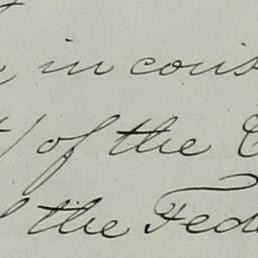 in cons
of the
the Fede